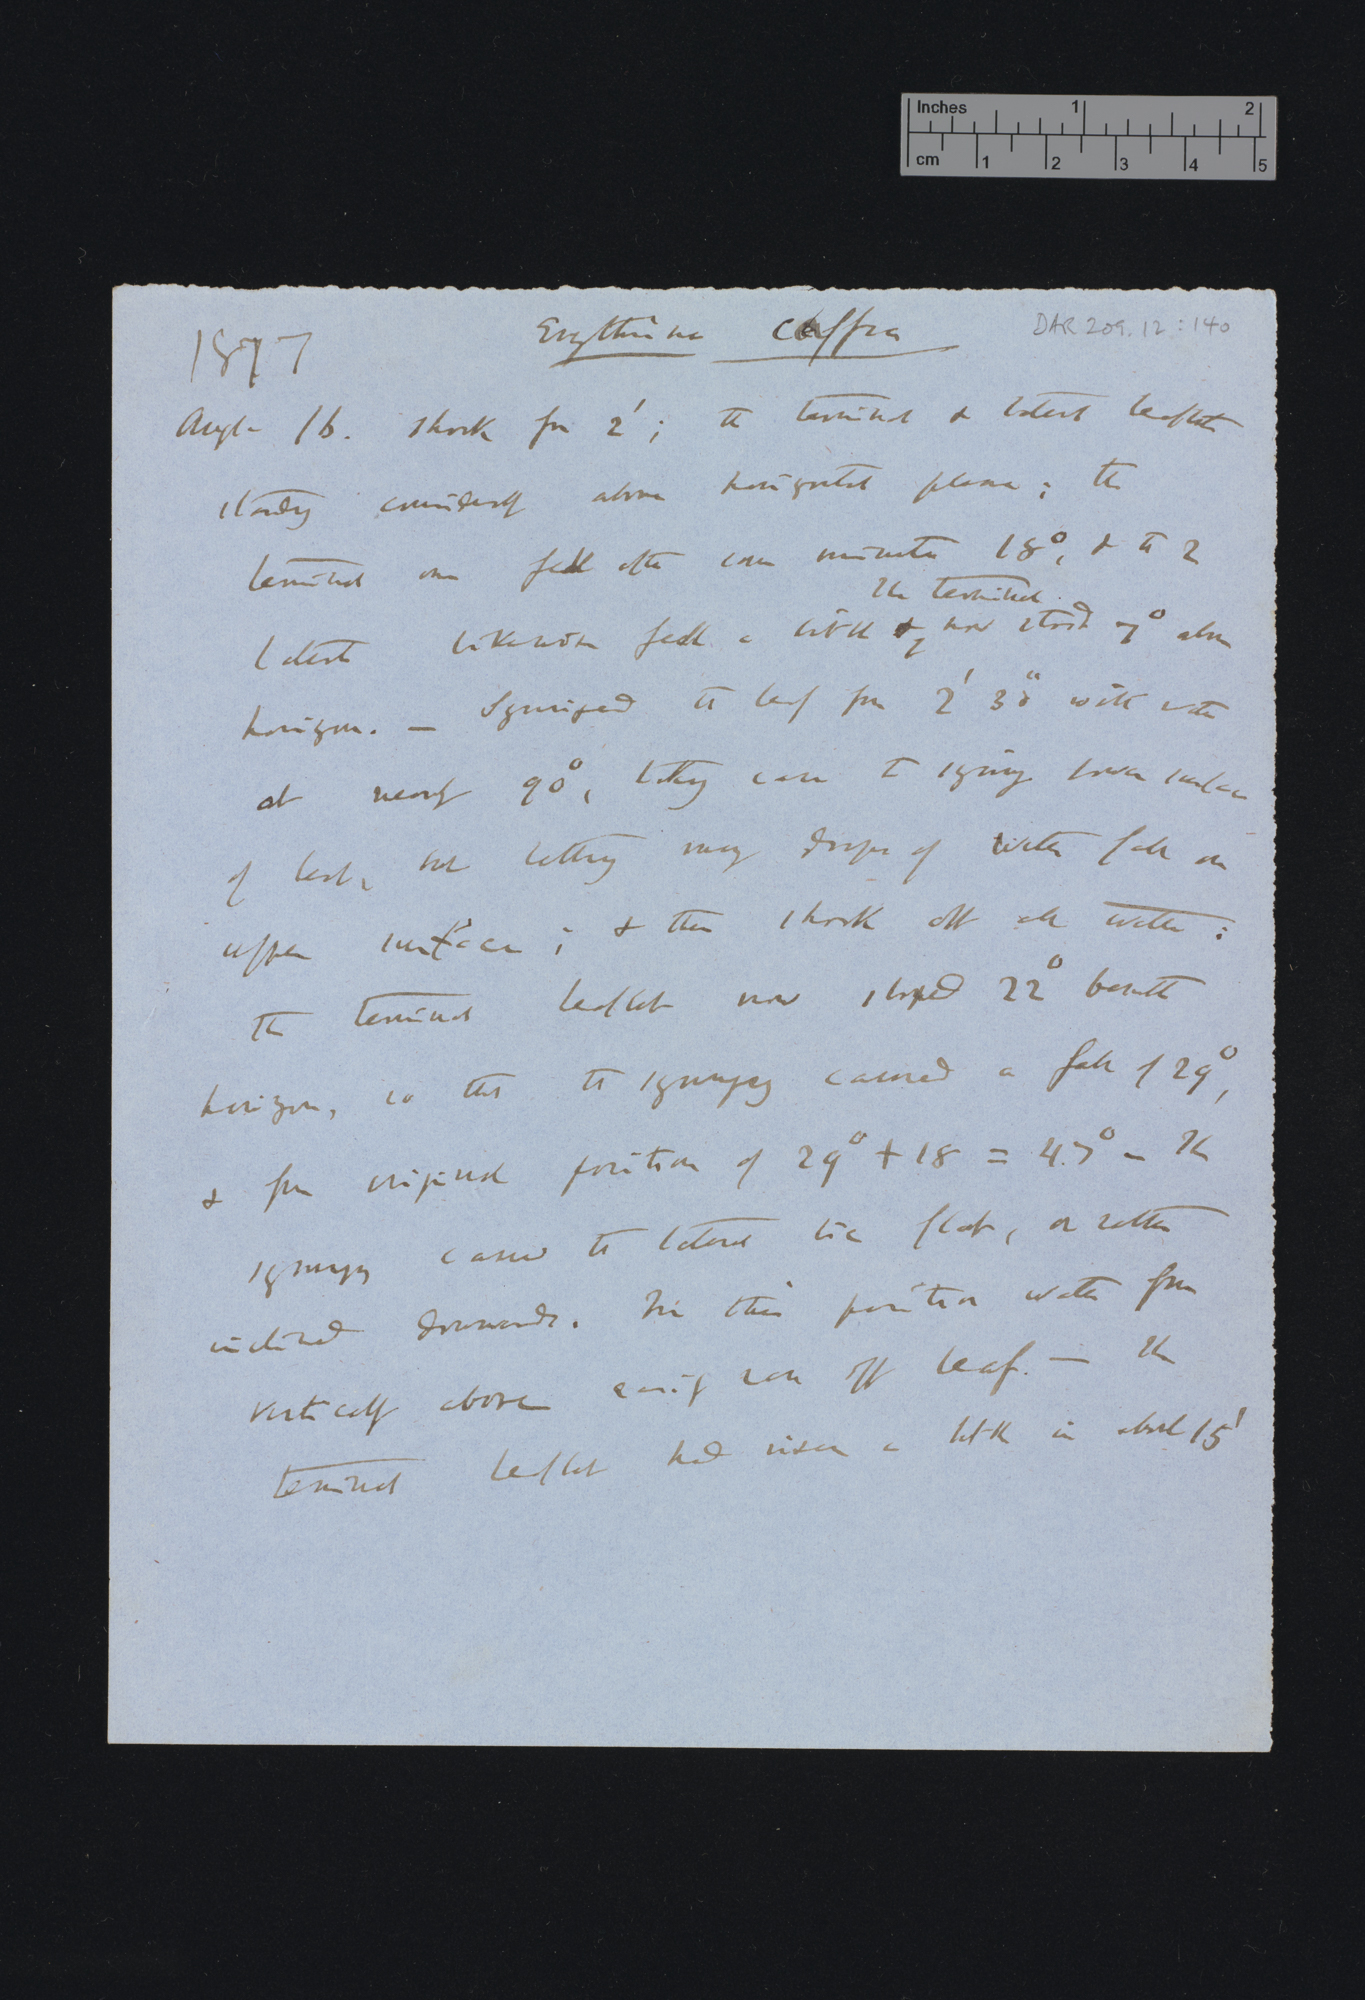 Inches 1 2
cm 1 2 3 4 5
1877
Erythrina caffra
DAR 209.12:140
Aug 16. shook for 2'; the terminal & lateral leaflets
standing considerably above horizontal plane; the
terminal one fell after some minutes 18°, & the 2
the terminal
laterals likewise fell a little & now stood 7° above
horizon. — Syringed the leaf for 2' 30" with water
at nearly 90°, taking care to syringe lower surface
of leaf, but letting many drops of water fall on
upper surface; & then shook off all water:
the terminal leaflet now sloped 22° beneath
horizon, so that the syringing caused a fall of 29°,
& from original position of 29° + 18 = 47° — The
syringing caused the lateral lie flat, or rather
inclined downwards. In this position water from
vertically above easily runs off leaf. — The
terminal leaflet had risen a little in about 15'